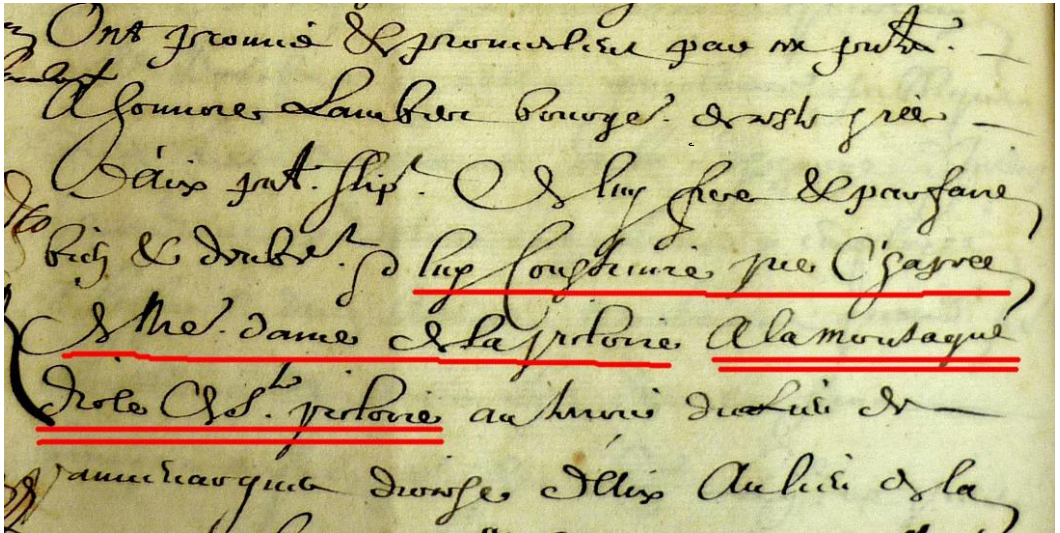 Ont promis & promettent par ce pnt.
A honnore Lambert bourge. de ceste ville
Daix pnt. stipt. De luy fere & parfaire
bien & deubt. luy Construire une Chapelle
de Nre. dame de la victoire A la montagne
dicte Ste. victoire au terroir du lieu de
vauvenargues diocese d'Aix Au lieu de la